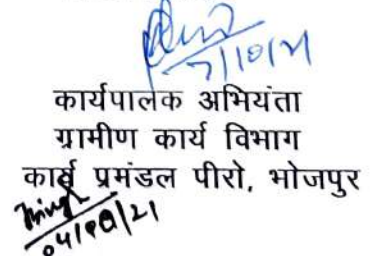 7/10/21
कार्यपालक अभियंता
ग्रामीण कार्य विभाग
कार्य प्रमंडल पीरो, भोजपुर